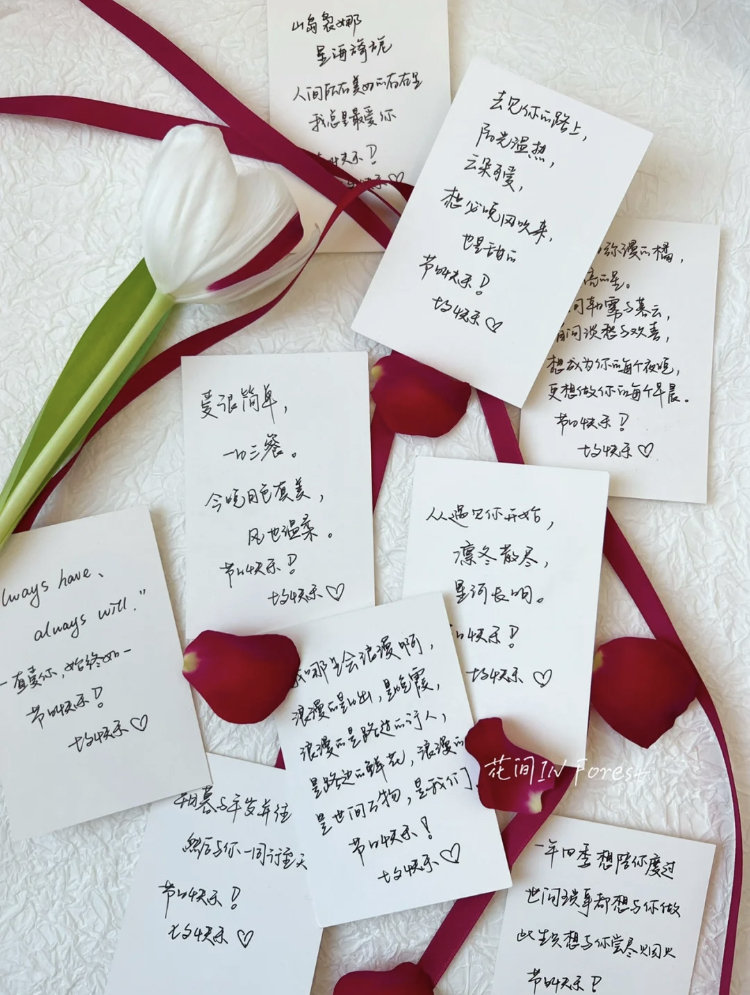 山岛袅娜
星海旖旎
人间所有美好的存在里
我总是最爱你
快乐!
快乐♡
去见你的路上,
阳光温热,
云朵可爱,
想必晚风吹来,
也是甜的
节日快乐!
快乐♡
弥漫的橘,
高的星。
朝霭与暮云,
间淡愁与欢喜,
想成为你的每个夜晚,
更想做你的每个早晨。
节日快乐!
快乐♡
爱很简单,
一日三餐。
今晚月色真美,
风也温柔。
节日快乐!
快乐♡
从遇见你开始,
凛冬散尽,
星河长明。
快乐!
快乐♡
lways have、
always will."
一直爱你,始终如一
节日快乐!
快乐♡
我哪里会浪漫啊,
浪漫的是日出,是晚霞,
浪漫的是路过的行人,
是路边的鲜花,浪漫的
是世间万物,是我们
节日快乐!
快乐♡
花间IN Forest
朝暮与年岁并往
然后与你一同行至天
节日快乐!
快乐♡
一年四季想陪你度过
世间琐事都想与你做
此生只想与你尝尽烟火
节日快乐!